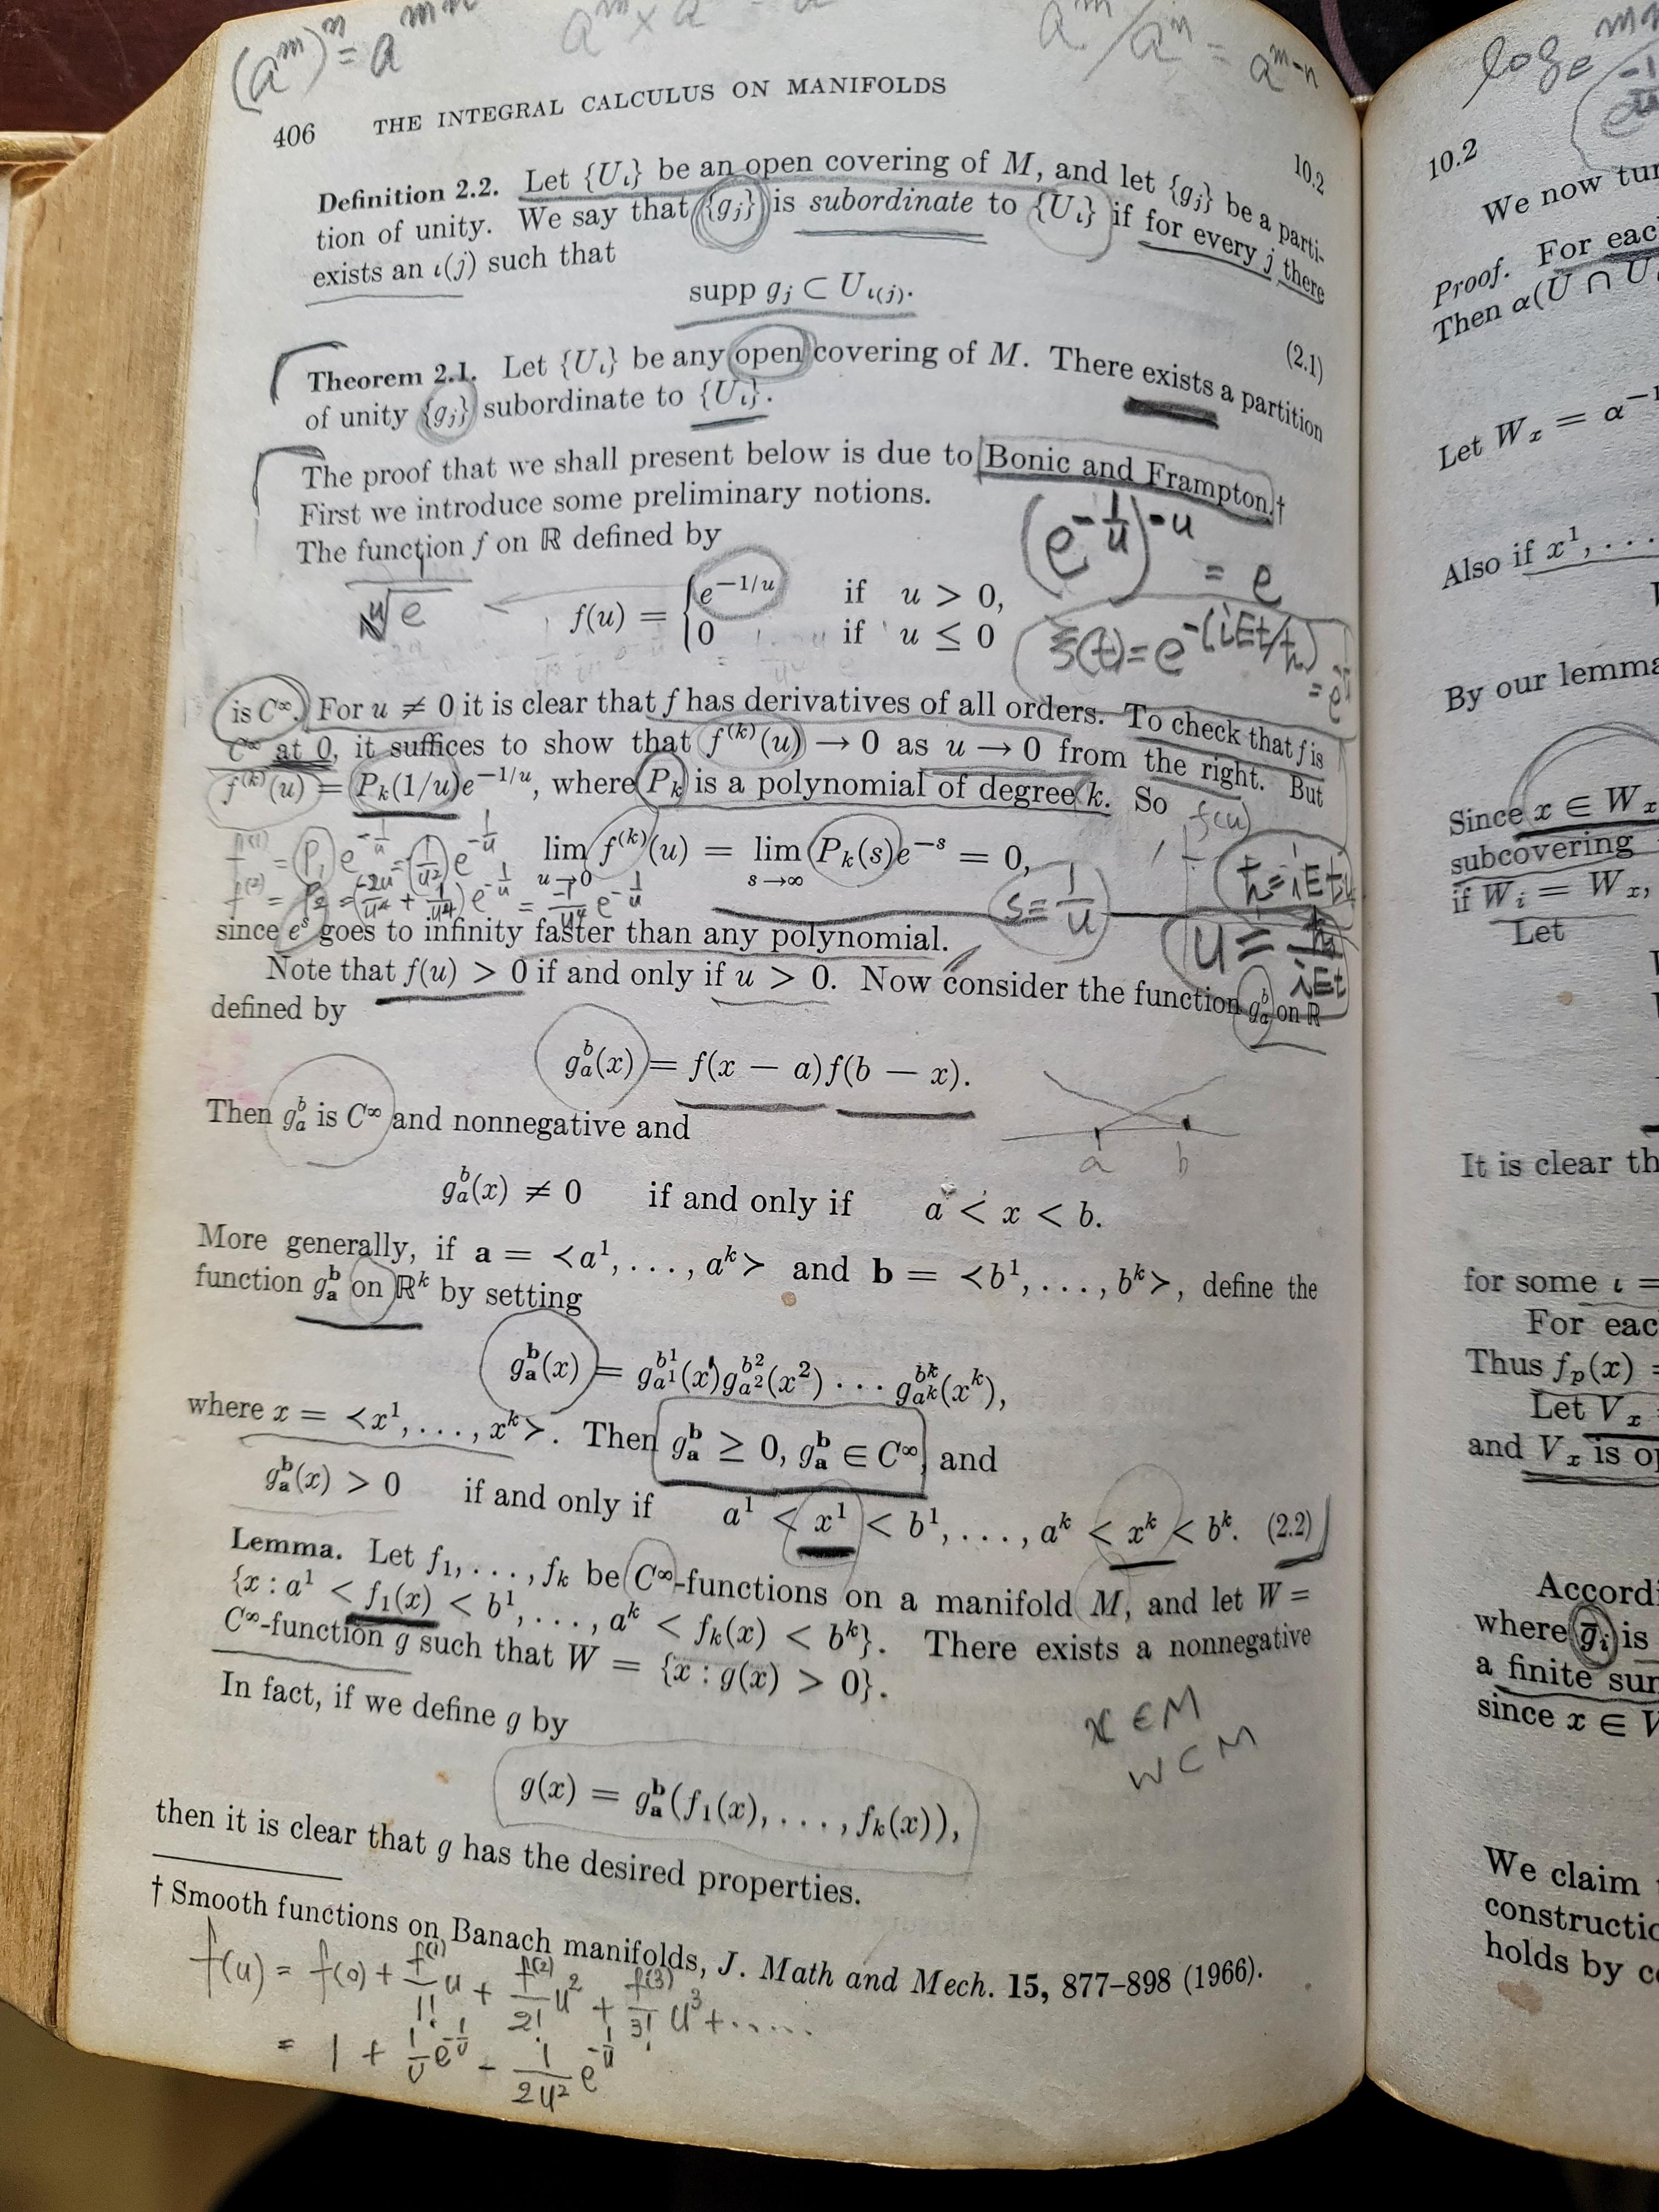 (aᵐ)ⁿ = aᵐⁿ
aᵐ / aⁿ = aᵐ⁻ⁿ
406 THE INTEGRAL CALCULUS ON MANIFOLDS 10.2
Definition 2.2. Let {Uι} be an open covering of M, and let {gj} be a parti-
tion of unity. We say that {gj} is subordinate to {Uι} if for every j there
exists an ι(j) such that
supp gj ⊂ Uι(j). (2.1)
Theorem 2.1. Let {Uι} be any open covering of M. There exists a partition
of unity {gj} subordinate to {Uι}.
The proof that we shall present below is due to Bonic and Frampton.†
First we introduce some preliminary notions.
The function f on ℝ defined by
(e^(-1/u))^(-u) = e
1/ᵘ√e
f(u) = { e^(-1/u) if u > 0,
0 if u ≤ 0
ξ(t) = e^(-(iEt/ħ))
is C∞. For u ≠ 0 it is clear that f has derivatives of all orders. To check that f is
C∞ at 0, it suffices to show that f⁽ᵏ⁾(u) → 0 as u → 0 from the right. But
f⁽ᵏ⁾(u) = Pk(1/u)e^(-1/u), where Pk is a polynomial of degree k. So
f(u)
f⁽¹⁾ = P₁ e^(-1/u) = (1/u²) e^(-1/u)
lim f⁽ᵏ⁾(u) = lim Pk(s)e^(-s) = 0,
u→0 s→∞
f⁽²⁾ = P₂ = (-2u/u⁴ + 1/u⁴) e^(-1/u)
s = 1/u
u = ħ/iEt
since eˢ goes to infinity faster than any polynomial.
Note that f(u) > 0 if and only if u > 0. Now consider the function gₐᵇ on ℝ
defined by
gₐᵇ(x) = f(x − a)f(b − x).
Then gₐᵇ is C∞ and nonnegative and
a b
gₐᵇ(x) ≠ 0 if and only if a < x < b.
More generally, if a = ≺a¹, . . . , aᵏ≻ and b = ≺b¹, . . . , bᵏ≻, define the
function gₐᵇ on ℝᵏ by setting
gₐᵇ(x) = g_{a¹}^{b¹}(x¹)g_{a²}^{b²}(x²) · · · g_{aᵏ}^{bᵏ}(xᵏ),
where x = ≺x¹, . . . , xᵏ≻. Then gₐᵇ ≥ 0, gₐᵇ ∈ C∞, and
gₐᵇ(x) > 0 if and only if a¹ < x¹ < b¹, . . . , aᵏ < xᵏ < bᵏ. (2.2)
Lemma. Let f₁, . . . , fk be C∞-functions on a manifold M, and let W =
{x : a¹ < f₁(x) < b¹, . . . , aᵏ < fk(x) < bᵏ}. There exists a nonnegative
C∞-function g such that W = {x : g(x) > 0}.
In fact, if we define g by
x ∈ M
W ⊂ M
g(x) = gₐᵇ(f₁(x), . . . , fk(x)),
then it is clear that g has the desired properties.
† Smooth functions on Banach manifolds, J. Math and Mech. 15, 877–898 (1966).
f(u) = f(0) + f⁽¹⁾/1! u + f⁽²⁾/2! u² + f⁽³⁾/3! u³ + .....
= 1 + 1/u e^(-1/u) - 1/2u² e^(-1/u)
10.2
We now
Proof. For
Then α(U ∩
Let Wx = α⁻
Also if x¹, . . .
By our
Since x ∈ Wx
subcovering
if Wi = Wx,
Let
It is clear
for some ι =
For
Thus fp(x) =
Let Vx
and Vx is
where ḡi is
a finite
since x ∈
We claim
holds by